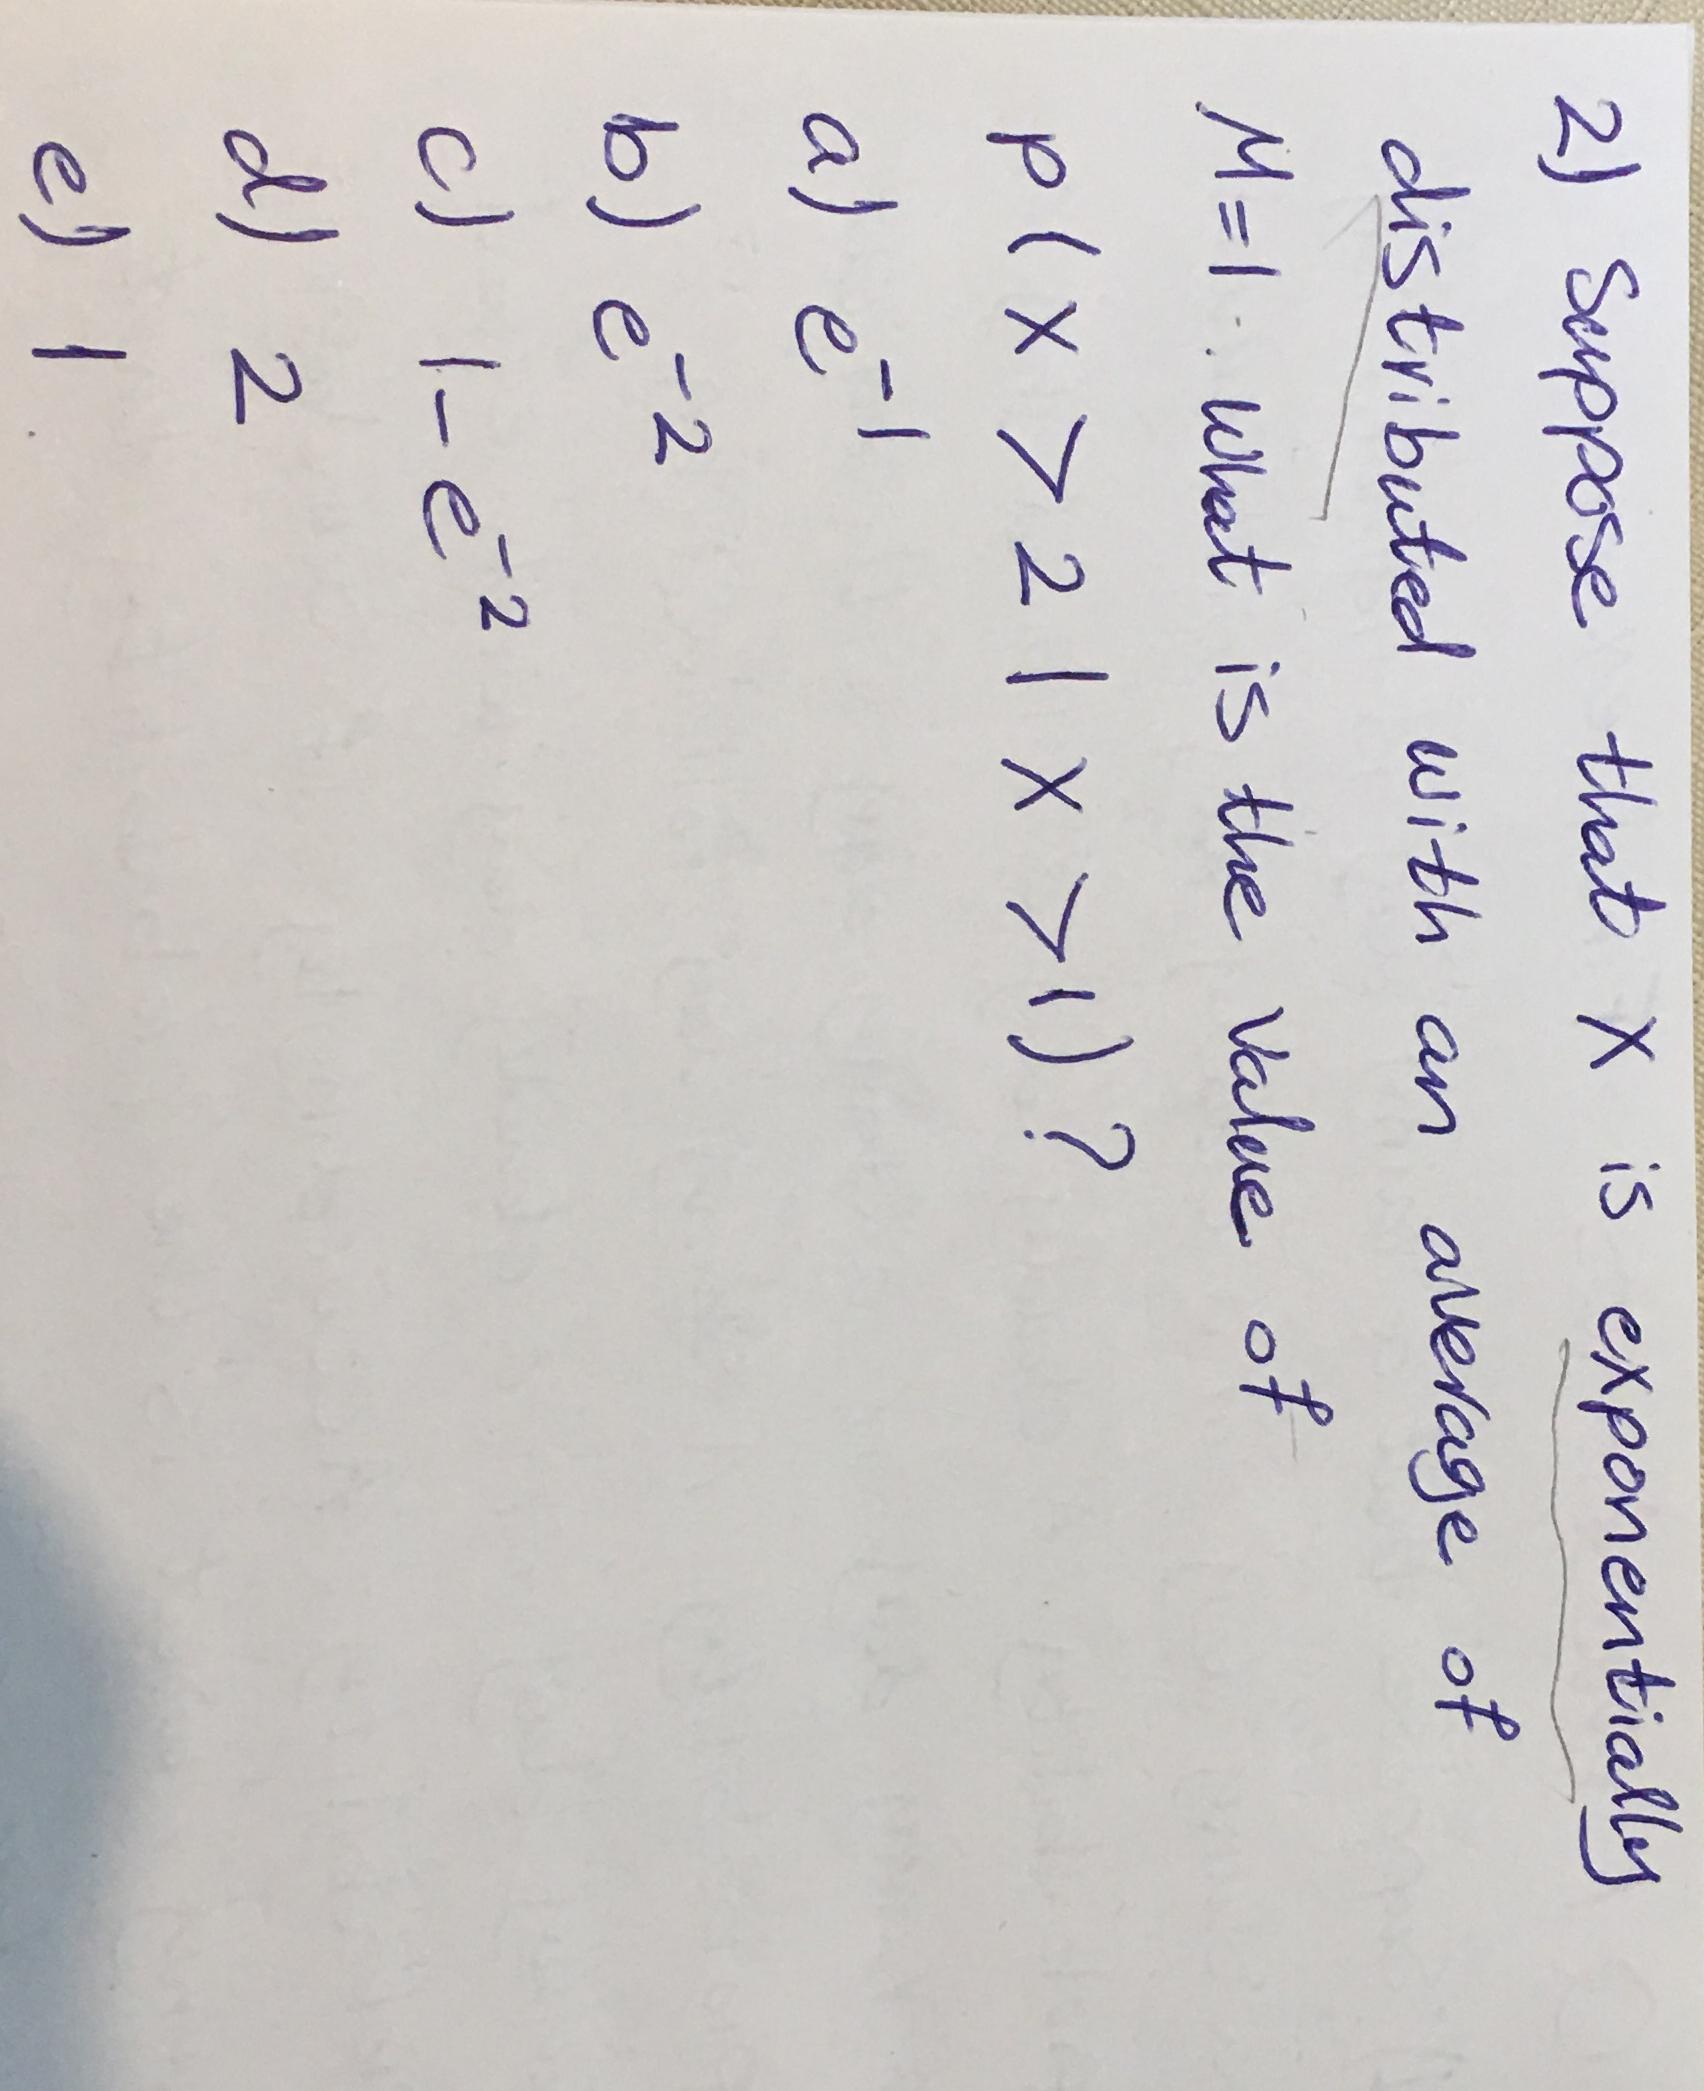 2) Suppose that X is exponentially
distributed with an average of
μ=1. What is the value of
P(X>2|X>1)?
a) e⁻¹
b) e⁻²
c) 1-e⁻²
d) 2
e) 1